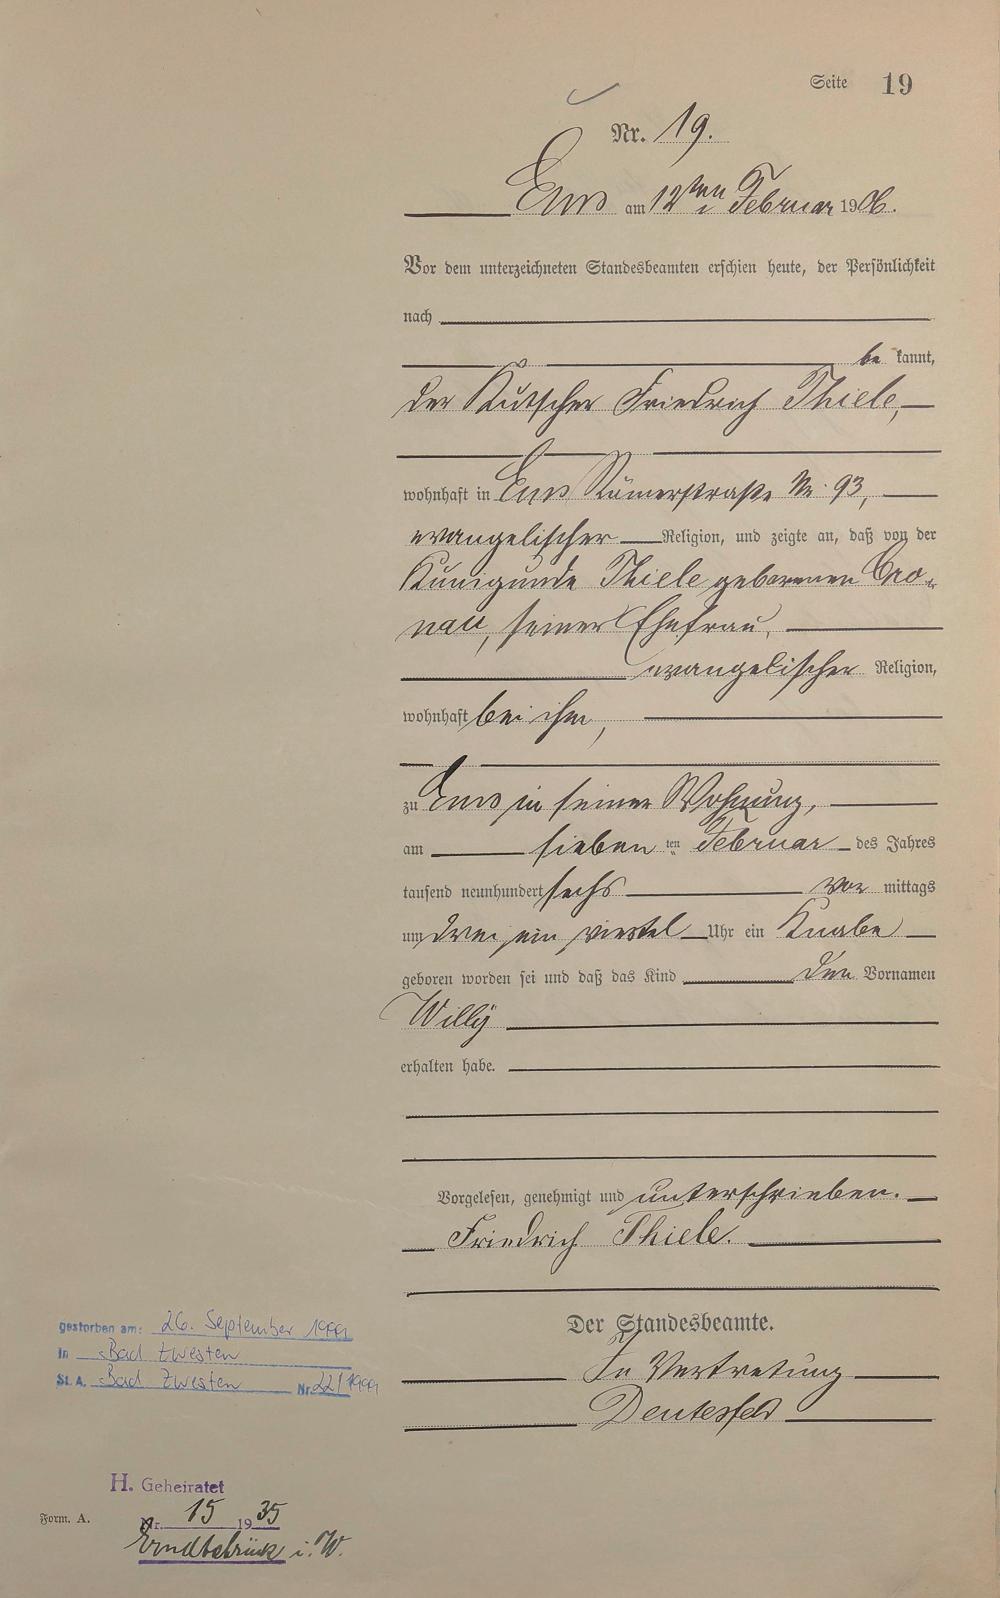 Seite 19
Nr. 19.
Ems am 12ten Februar 1906.
Vor dem unterzeichneten Standesbeamten erschien heute, der Persönlichkeit
nach
be kannt,
der Kutscher Friedrich Thiele,
wohnhaft in Ems Römerstraße Nr. 93,
evangelischer Religion, und zeigte an, daß von der
Kunigunde Thiele geborenen Cro-
nau, seiner Ehefrau,
evangelischer Religion,
wohnhaft bei ihm,
zu Ems in seiner Wohnung,
am sieben ten Februar des Jahres
tausend neunhundert sechs vor mittags
um drei ein viertel Uhr ein Knabe
geboren worden sei und daß das Kind den Vornamen
Willy
erhalten habe.
Vorgelesen, genehmigt und unterschrieben.
Friedrich Thiele.
Der Standesbeamte.
In Vertretung
Deutesfeld
gestorben am: 26. September 1999
in Bad Zwesten
St. A. Bad Zwesten Nr. 22/1999
H. Geheiratet
Form. A. Nr. 15 1935
Erndtebrück i. W.